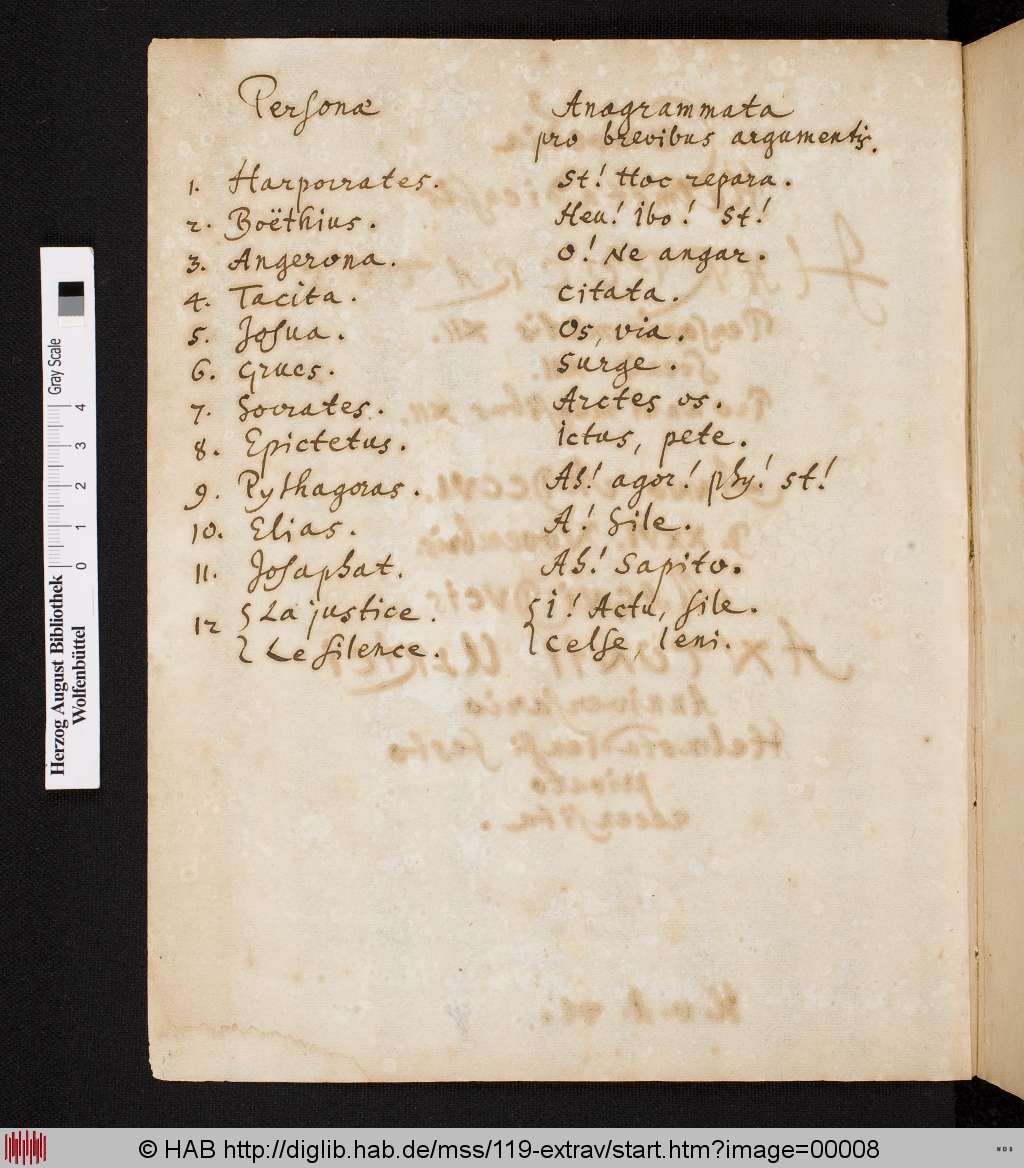 Personæ
Anagrammata
pro brevibus argumentis.
1. Harpocrates. St! Hoc repara.
2. Boëthius. Heu! ibo! St!
3. Angerona. O! Ne angar.
4. Tacita. Citata.
5. Josua. Os, via.
6. Grues. Surge.
7. Socrates. Arctes os.
8. Epictetus. Ictus, pete.
9. Pythagoras. Ah! agor! phy! st!
10. Elias. A! sile.
11. Josaphat. Ah! Sapito.
12 { La justice. { I! Actu, sile.
{ Le silence. { Celse, leni.
Herzog August Bibliothek
Wolfenbüttel
0 1 2 3 4
Gray Scale
© HAB http://diglib.hab.de/mss/119-extrav/start.htm?image=00008